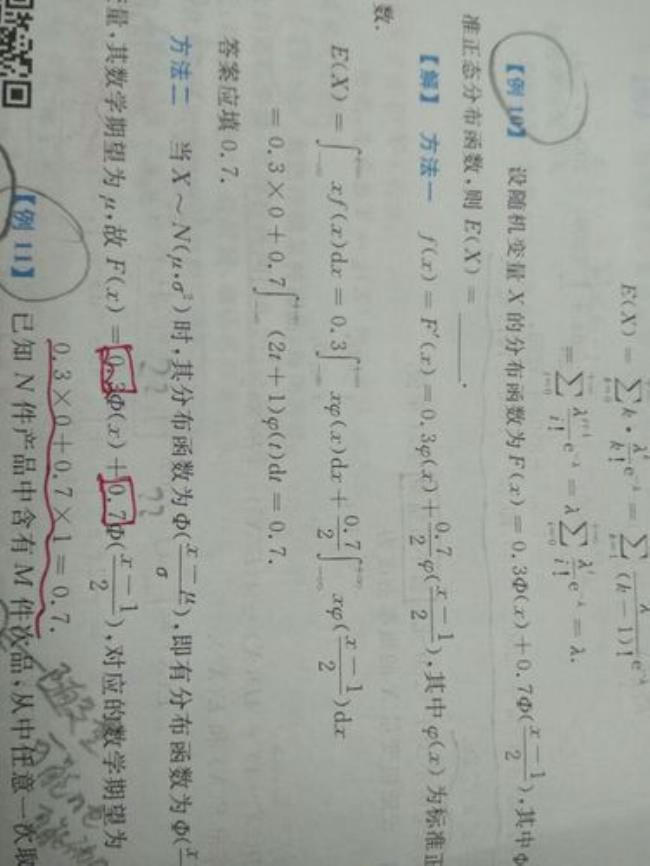 E(X) = ∑ k · λ^k/k! e^{-λ} = ∑ λ/(k-1)! e^{-λ}
= ∑ λ^{i+1}/i! e^{-λ} = λ ∑ λ^i/i! e^{-λ} = λ.
【例 10】 设随机变量 X 的分布函数为 F(x) = 0.3Φ(x) + 0.7Φ((x-1)/2), 其中 Φ
准正态分布函数, 则 E(X) = ______.
【解】 方法一 f(x) = F′(x) = 0.3φ(x) + 0.7/2 φ((x-1)/2), 其中 φ(x) 为标准正
数.
E(X) = ∫_{-∞}^{+∞} xf(x)dx = 0.3∫_{-∞}^{+∞} xφ(x)dx + 0.7/2 ∫_{-∞}^{+∞} xφ((x-1)/2)dx
= 0.3×0 + 0.7∫_{-∞}^{+∞} (2t+1)φ(t)dt = 0.7.
答案应填 0.7.
方法二 当 X ~ N(μ,σ²) 时, 其分布函数为 Φ((x-μ)/σ), 即有分布函数为 Φ(x
量, 其数学期望为 μ, 故 F(x) = 0.3Φ(x) + 0.7Φ((x-1)/2), 对应的数学期望为
??
0.3×0 + 0.7×1 = 0.7.
【例 11】 已知 N 件产品中含有 M 件次品, 从中任意一次取